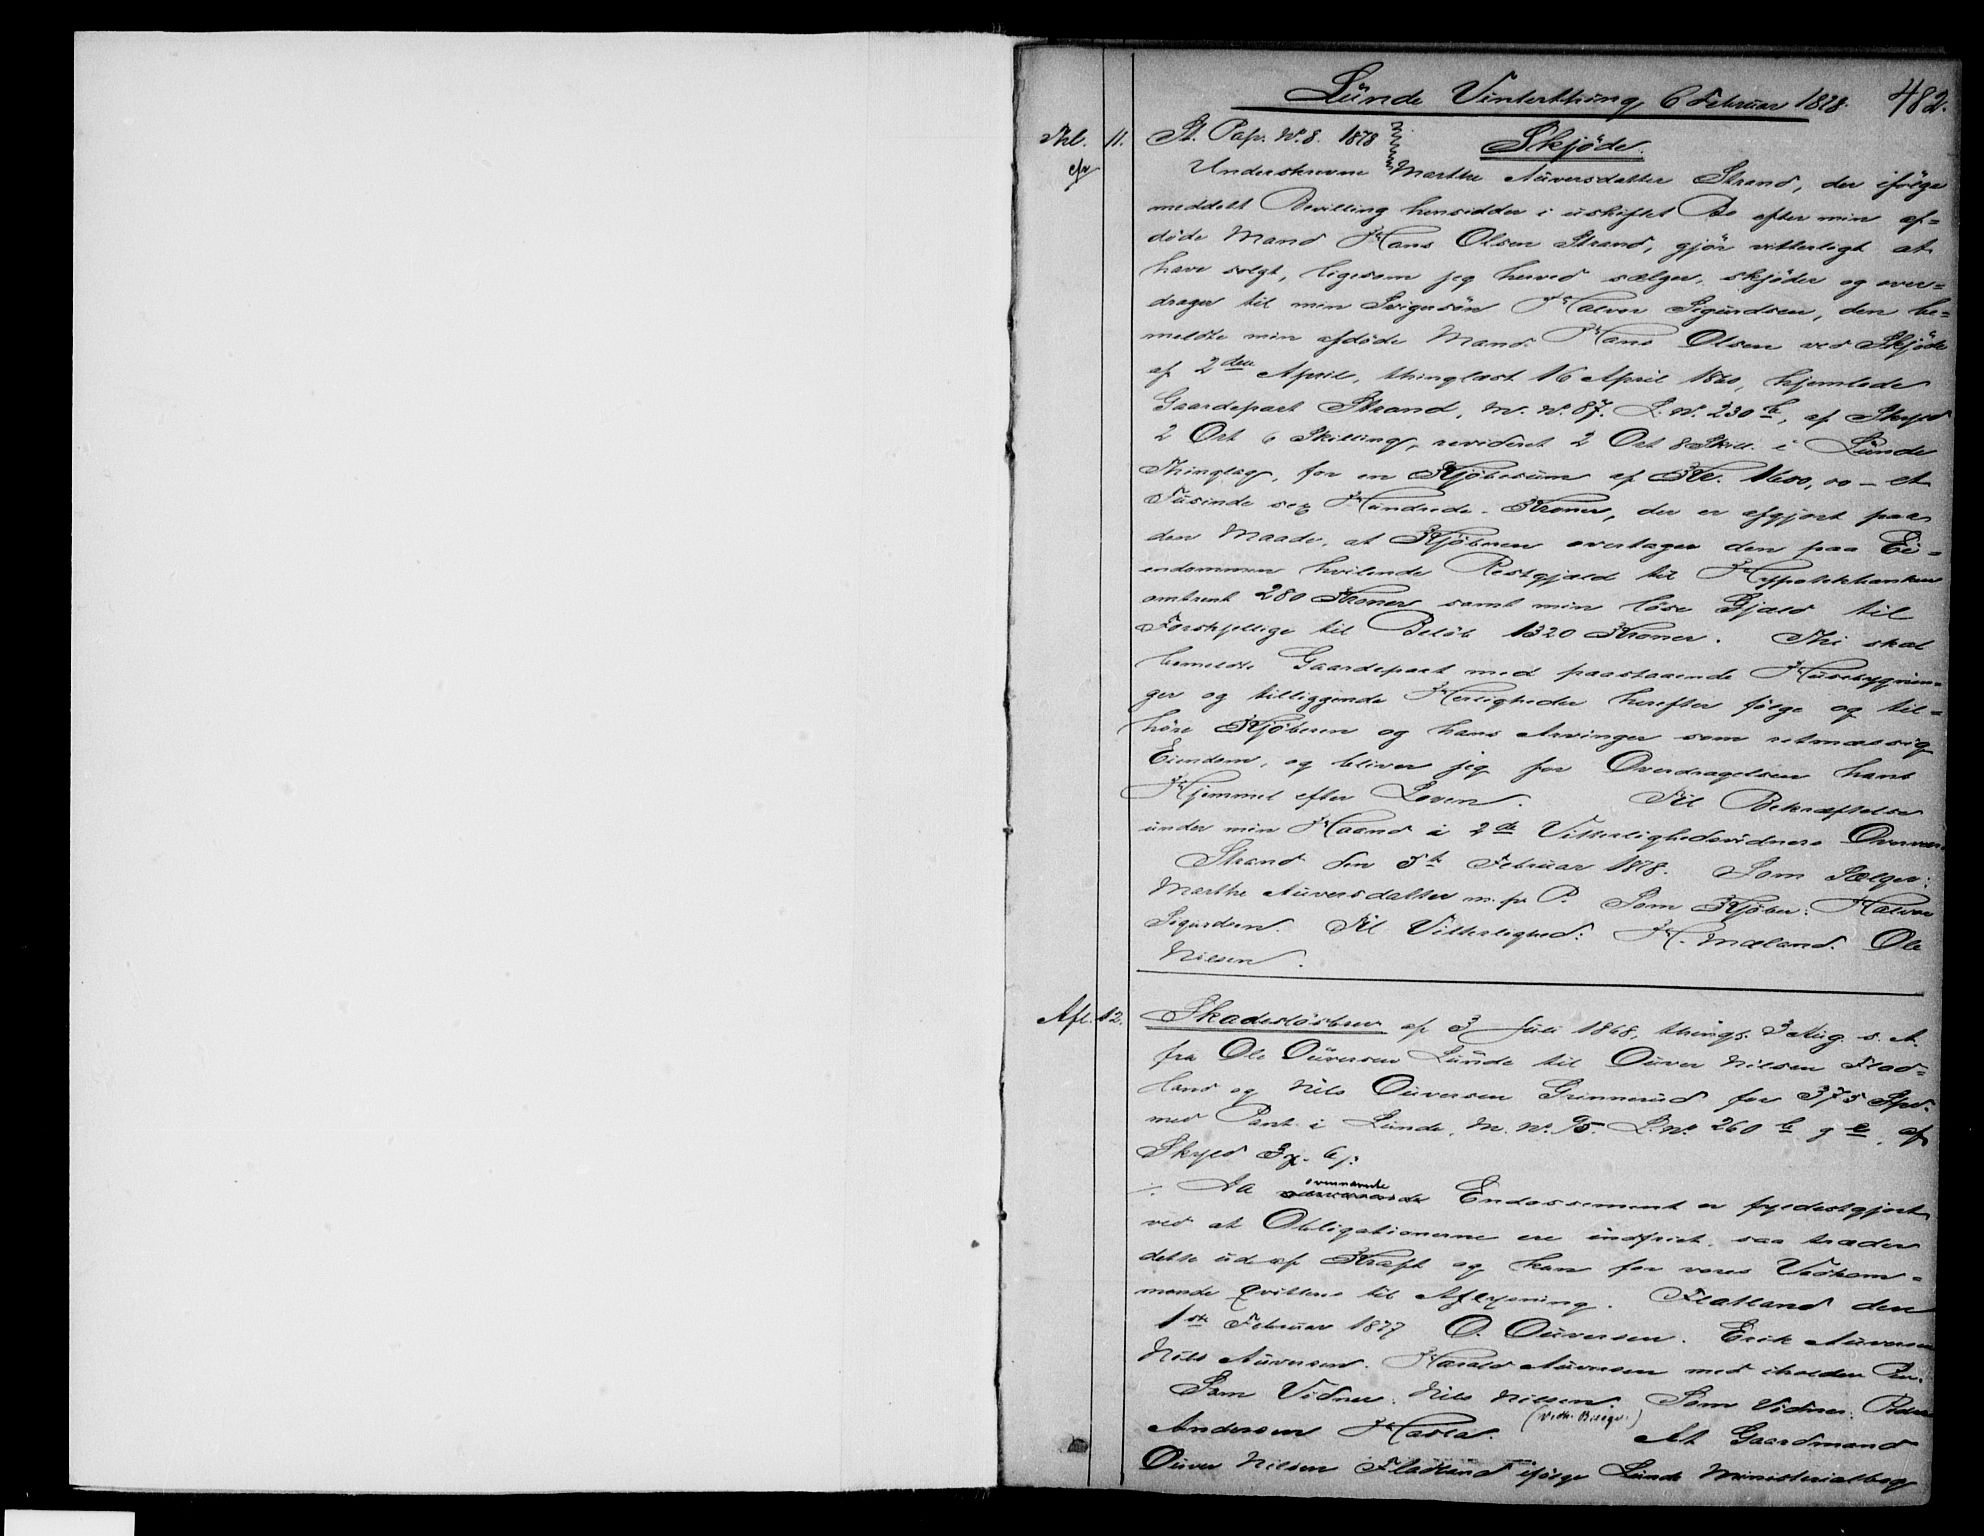 Lunde Vinterthing 6 Februar 1878. 482.
Thl. 11. St. Pap. No. 8. 1878 Skjøde.
Underskrevne Marthe Auversdatter Strand, der ifølge
meddelt Bevilling hensidder i uskiftet Bo efter min af-
døde Mand Hans Olsen Strand, gjør vitterligt at
have solgt, ligesom jeg herved sælger, skjøder og over-
drager til min Svigersøn Halvor Sigurdsen, den be-
meldte min afdøde Mand Hans Olsen ved Skjøde
af 2den April, thinglæst 16 April 1860, hjemlede
Gaardepart Strand, M. No. 87. L. No. 230 b, af Skyld
2 Ort 6 Skilling, revideret 2 Ort 8 Skill. i Lunde
Thinglag, for en Kjøbesum af Kr. 1600,00 – et
Tusinde sex Hundrede - Kroner, der er afgjort paa
den Maade, at Kjøberen overtager den paa Ei-
endommen hvilende Restgjæld til Hypothekbanken
omtrent 280 Kroner samt min løse Gjæld til
Forskjellige til Beløb 1320 Kroner. Thi skal
bemeldte Gaardepart med paastaaende Husebygnin-
ger og tilliggende Herligheder herefter følge og til-
høre Kjøberen og hans Arvinger som retmæssig
Eiendom, og bliver jeg for Overdragelsen hans
Hjemmel efter Loven. Til Bekræftelse
under min Haand i 2de Vitterlighedsvidners Overvær.
Strand den 5te Februar 1878. Som Sælger:
Marthe Auversdatter m. p. P. Som Kjøber: Halvor
Sigurdsen. Til Vitterlighed: H. Mæland. Ole
Nilsen.
Afl. 12. Skadesløsbrev af 3 Juli 1868, thingl. 3 Aug. s. A.
fra Ole Ouversen Lunde til Ouver Nilsen Flad-
land og Nils Ouversen Grinnerud for 375 Spd.
med Pant i Lunde, M. No. 95. L. No. 260 b g e, af
Skyld 3
./. Da ovennævnte Endossement er fyldestgjort
ved at Obligationerne ere indfriet, saa træder
dette ud af Kraft og kan for vores Vedkom-
mende qvitteres til Aflysning. Flatland den
1ste Februar 1877 O. Ouversen. Erik Auversen
Nils Auversen. Harald Auversen med iholden Pen.
Som Vidner: Nils Nilsen. Som Vidner: Peder
Andersen Hasla. At Gaardmand
Ouver Nilsen Fladland ifølge Lunde Ministerialbog